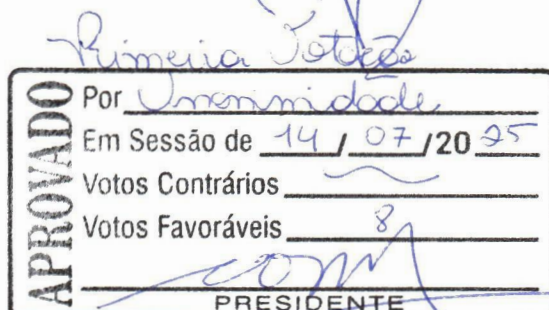 Primeira Votação
APROVADO
Por Unanimidade
Em Sessão de 14 / 07 /20 25
Votos Contrários
Votos Favoráveis 8
PRESIDENTE